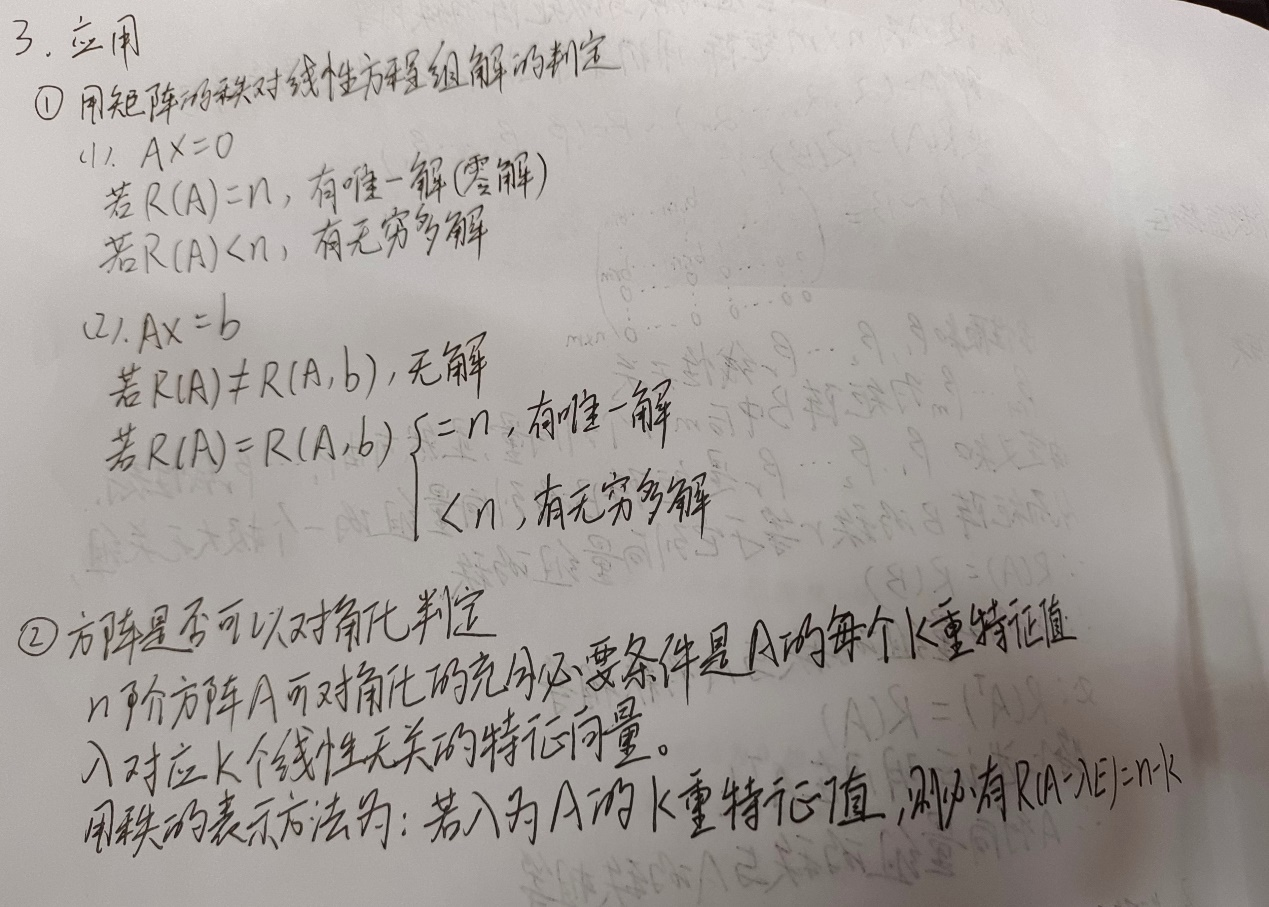 3. 应用
① 用矩阵的秩对线性方程组解的判定
(1). AX=0
若R(A)=n, 有唯一解(零解)
若R(A)<n, 有无穷多解
(2). AX=b
若R(A)≠R(A,b), 无解
若R(A)=R(A,b) { =n, 有唯一解
<n, 有无穷多解
② 方阵是否可以对角化判定
n阶方阵A可对角化的充分必要条件是A的每个K重特征值
λ对应K个线性无关的特征向量。
用秩的表示方法为: 若λ为A的K重特征值, 则必有R(A-λE)=n-k